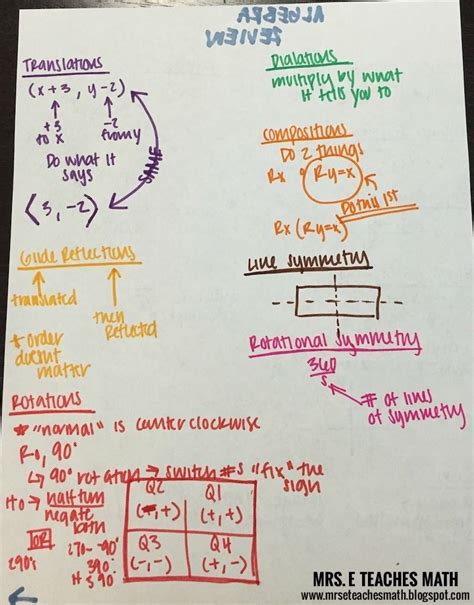 ALGEBRA
REVIEW
Translations
(x+3, y-2)
+3
to x
-2
from y
Do what it
says
SAME
⟨3, -2⟩
Glide Reflections
translated
then
Reflected
* order
doesnt
matter
Rotations
* "normal" is counter clockwise
R0, 90°
↳ 90° rotation → switch #s "fix" the
sign
H0 → half turn
negate
both
OR
Q2
(-,+)
Q1
(+,+)
Q3
(-,-)
Q4
(+,-)
270 → -90°
Dialations
multiply by what
it tells you to
Compositions
Do 2 things
Rx ∘ Ry=x
Do this 1st
Rx (Ry=x)
Line Symmetry
Rotational Symmetry
360
s
# of lines
of symmetry
MRS. E TEACHES MATH
www.mrseteachesmath.blogspot.com